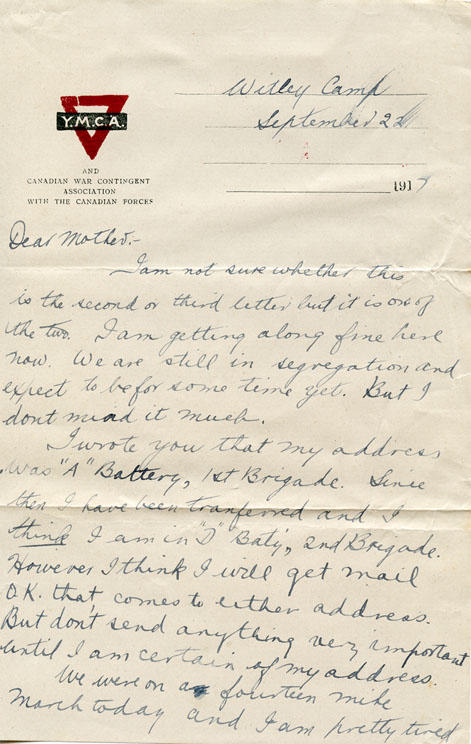 Witley Camp
September 22
Y.M.C.A.
AND
CANADIAN WAR CONTINGENT
ASSOCIATION
WITH THE CANADIAN FORCES
1917
Dear Mother:-
I am not sure whether this
is the second or third letter but it is one of
the two. I am getting along fine here
now. We are still in segregation and
expect to be for some time yet. But I
dont mind it much.
I wrote you that my address
was "A" Battery, 1st Brigade. Since
then I have been tranferred and I
think I am in "D" Baty., 2nd Brigade.
However I think I will get mail
O.K. that comes to either address.
But don't send anything very important
until I am certain of my address.
We were on a fourteen mile
march today and I am pretty tired